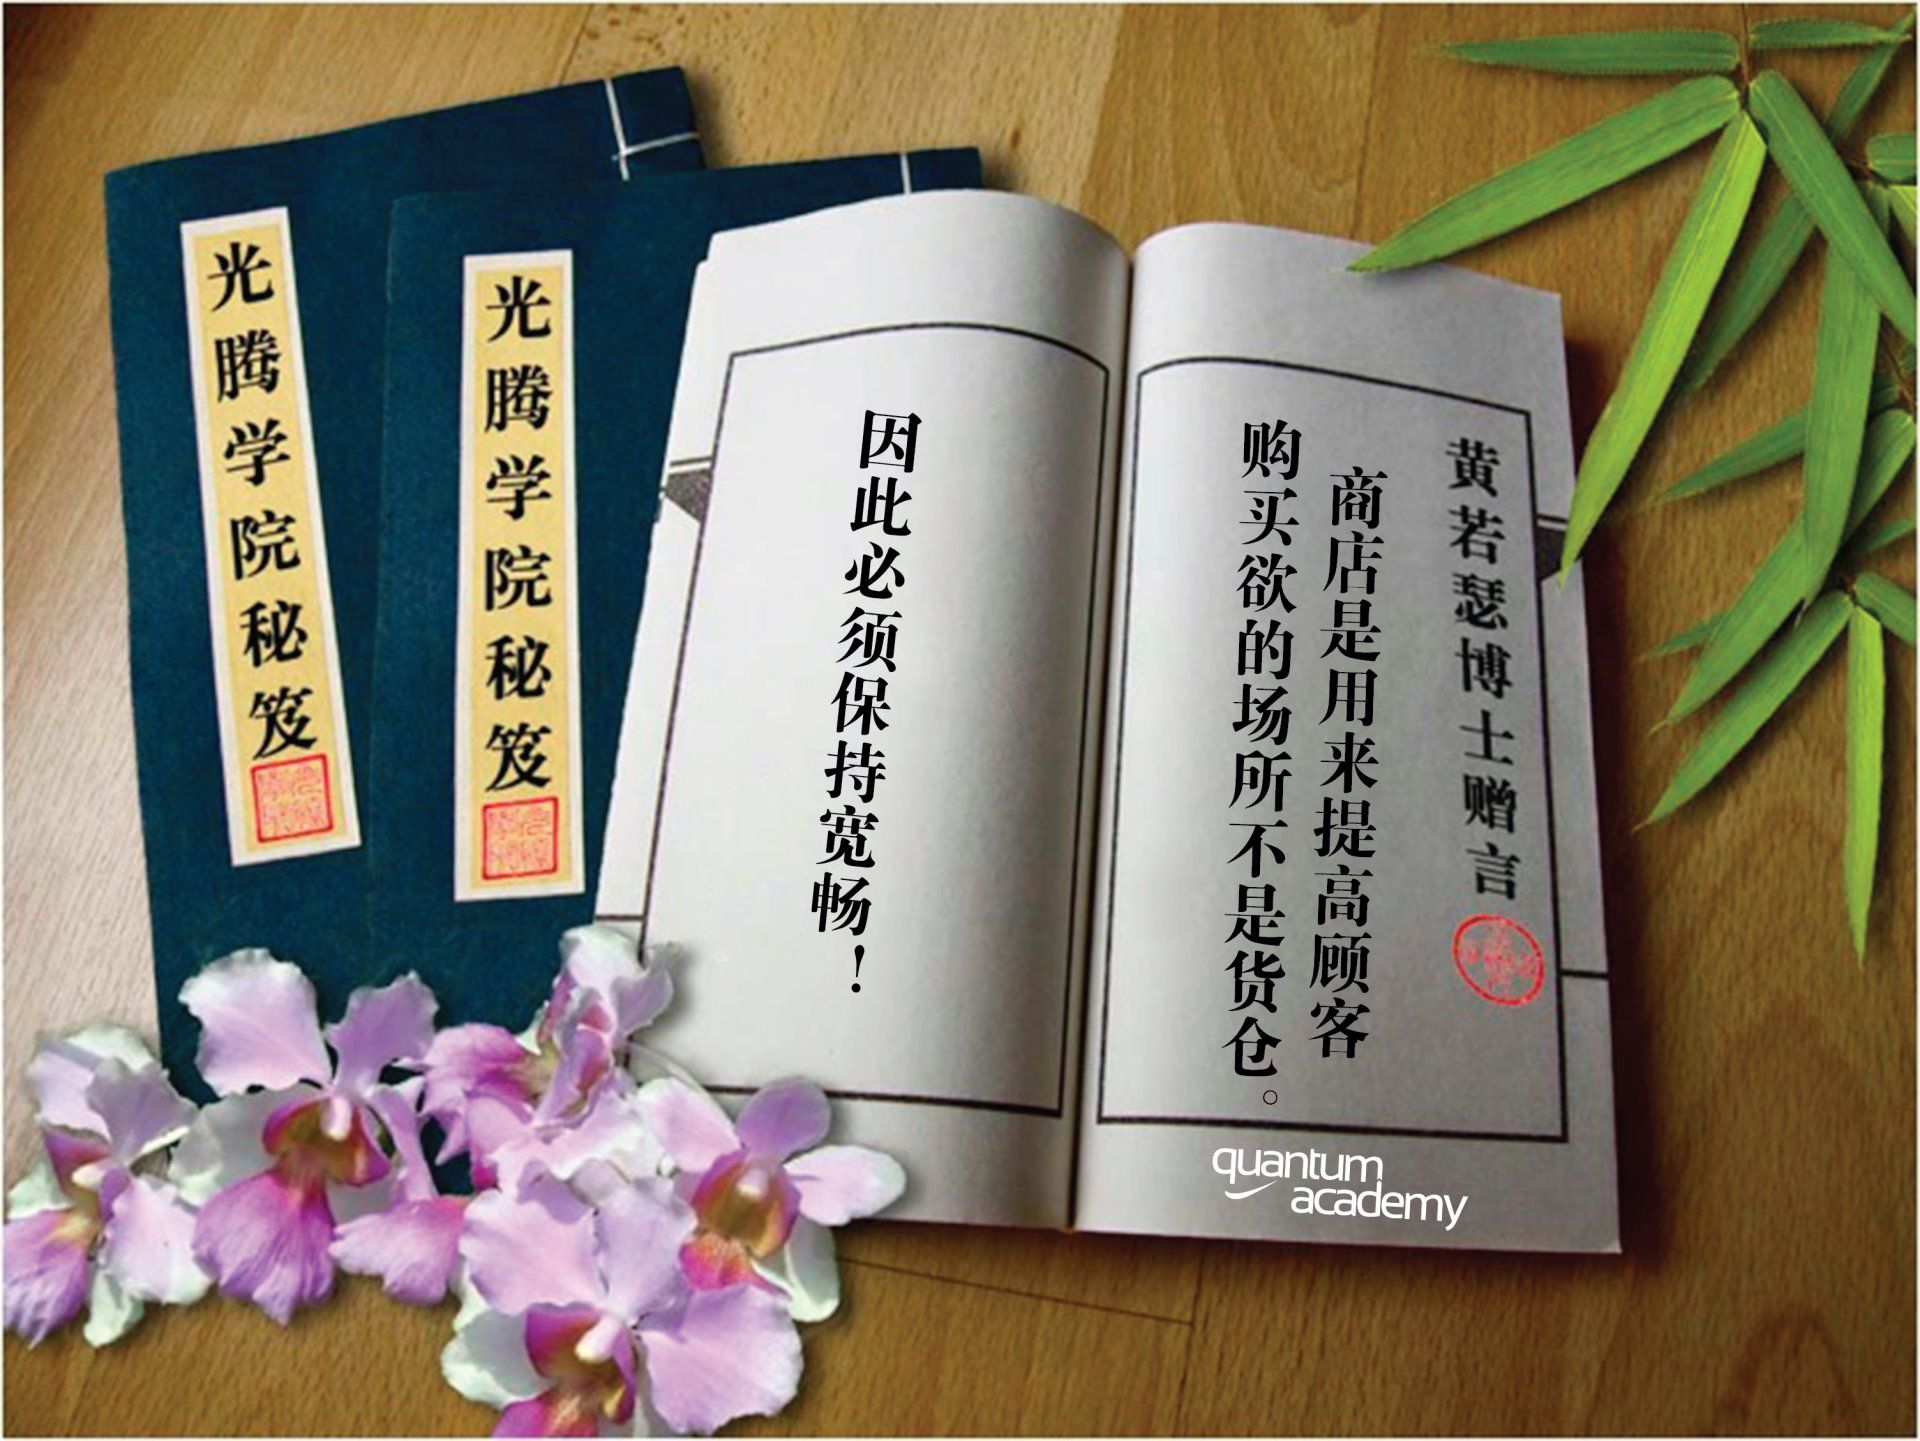 光腾学院秘笈
光腾学院秘笈
黄若瑟博士赠言
商店是用来提高顾客
购买欲的场所不是货仓。
因此必须保持宽畅！
quantum
academy